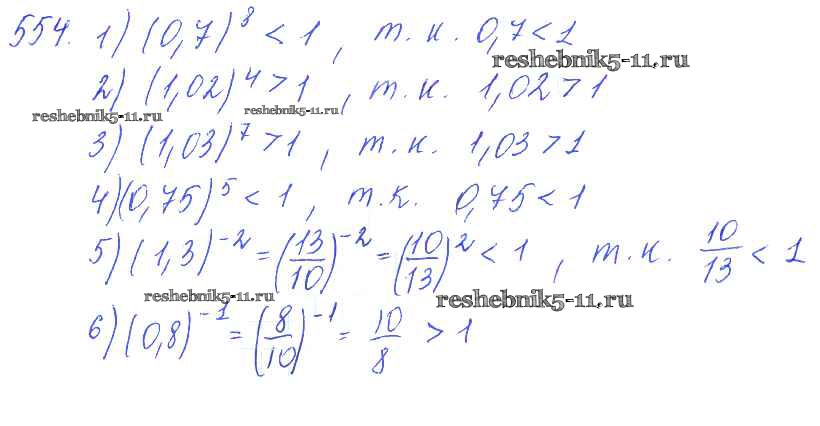 554. 1) (0,7)^8 < 1, т.к. 0,7 < 1
reshebnik5-11.ru
2) (1,02)^4 > 1, т.к. 1,02 > 1
reshebnik5-11.ru reshebnik5-11.ru
3) (1,03)^7 > 1, т.к. 1,03 > 1
4) (0,75)^5 < 1, т.к. 0,75 < 1
5) (1,3)^-2 = (13/10)^-2 = (10/13)^2 < 1, т.к. 10/13 < 1
reshebnik5-11.ru reshebnik5-11.ru
6) (0,8)^-1 = (8/10)^-1 = 10/8 > 1